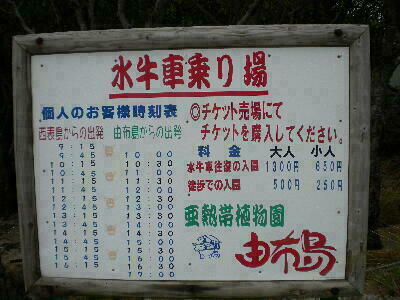 水牛車乗り場
個人のお客様時刻表
西表島からの出発 由布島からの出発
9:15
9:45 10:00
10:15 10:30
10:45 11:00
11:15 11:30
11:45 12:00
12:15 12:30
12:45 13:00
13:15 13:30
13:45 14:00
14:15 14:30
14:45 15:00
15:15 15:30
15:45 16:00
16:15 16:30
17:00
◎チケット売場にて
チケットを購入してください。
料金 大人 小人
水牛車往復の入園 1300円 650円
徒歩での入園 500円 250円
亜熱帯植物園
由布島